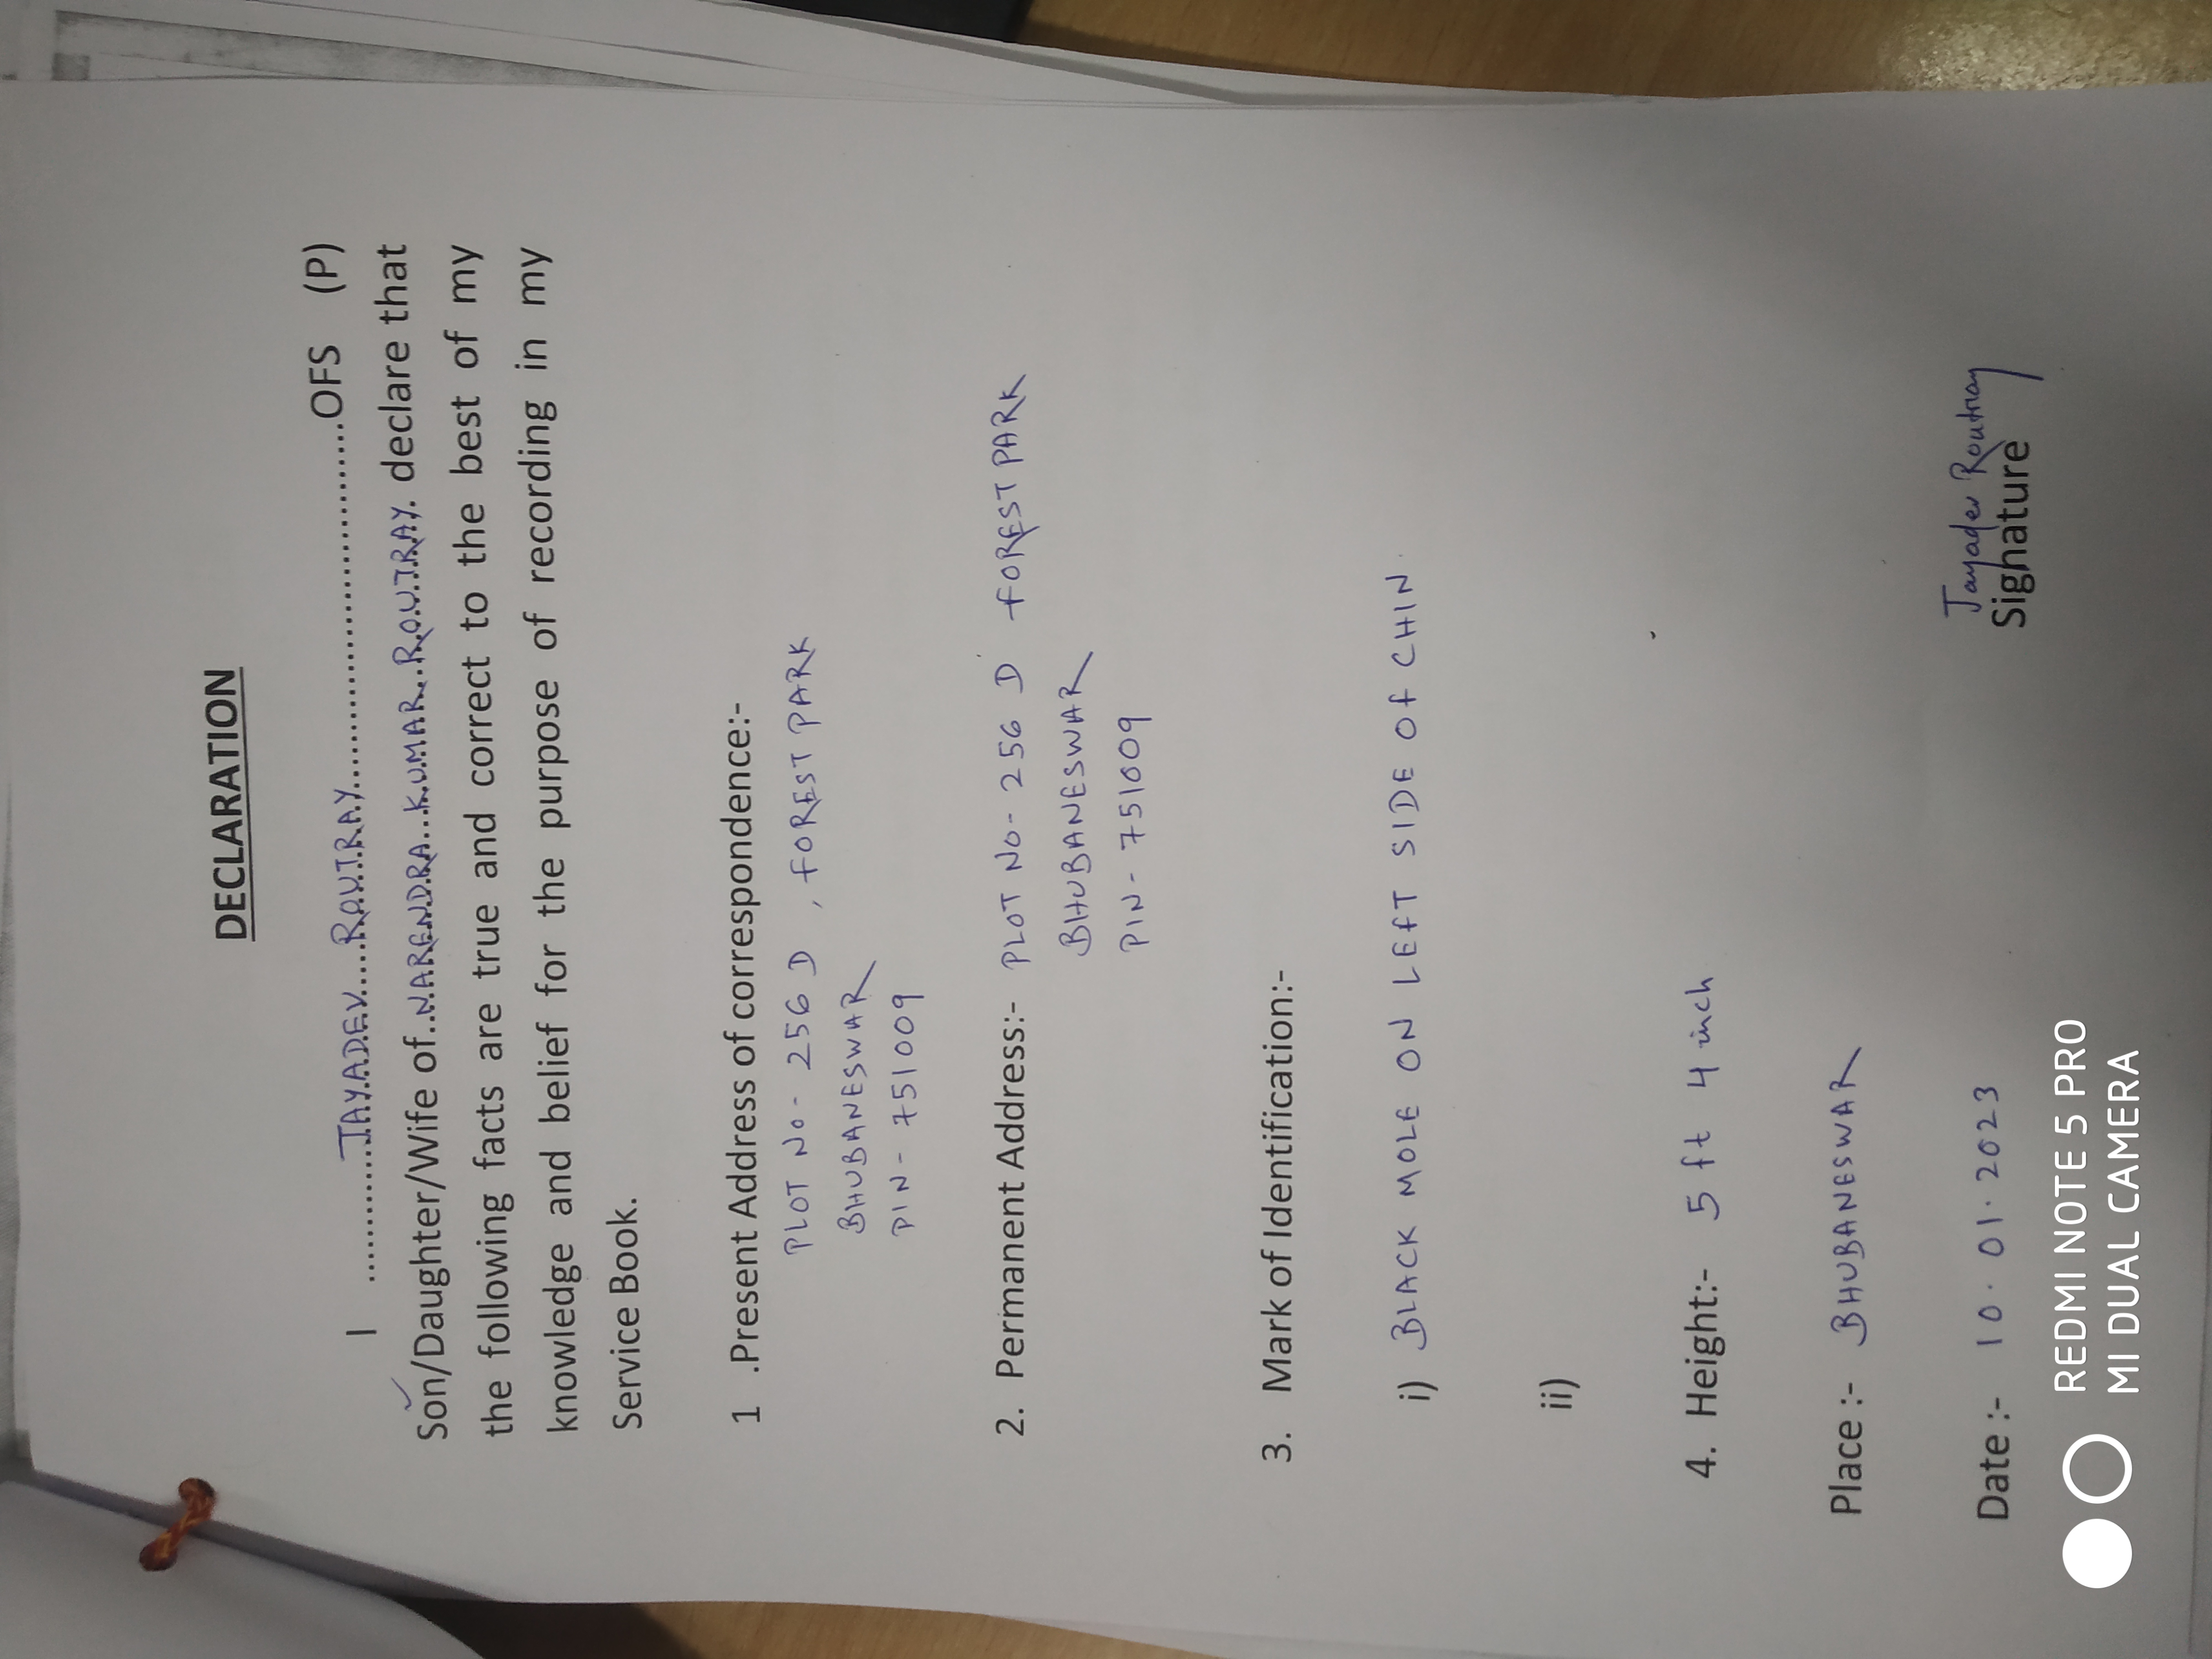 DECLARATION
I .............JAYADEV....ROUTRAY.................................OFS (P)
Son/Daughter/Wife of..NARENDRA...KUMAR..ROUTRAY. declare that
the following facts are true and correct to the best of my
knowledge and belief for the purpose of recording in my
Service Book.
1 .Present Address of correspondence:-
PLOT No - 256 D , FOREST PARK
BHUBANESWAR
PIN - 751009
2. Permanent Address:- PLOT No - 256 D FOREST PARK
BHUBANESWAR
PIN - 751009
3. Mark of Identification:-
i) BLACK MOLE ON LEFT SIDE OF CHIN.
ii)
4. Height:- 5 ft 4 inch
Place :- BHUBANESWAR
Jayadev Routray
Date :- 10.01.2023 Signature
REDMI NOTE 5 PRO
MI DUAL CAMERA